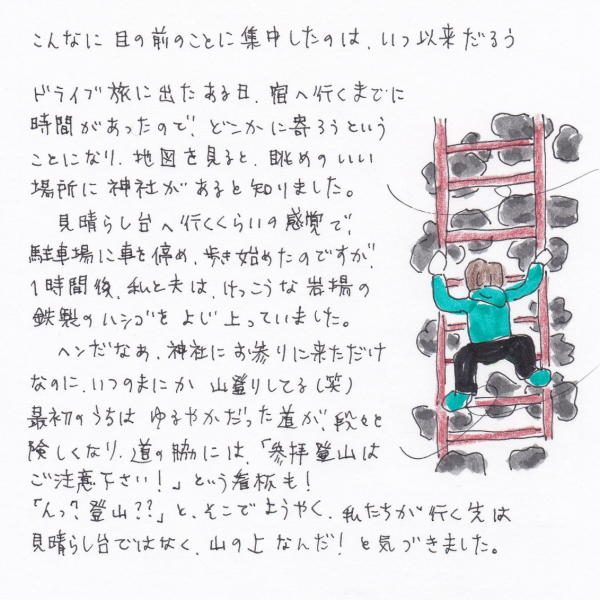 こんなに 目の前のことに集中したのは、いつ以来だろう
ドライブ旅に出たある日、宿へ行くまでに
時間があったので、どこかに寄ろうという
ことになり、地図を見ると、眺めのいい
場所に神社があると知りました。
見晴らし台へ行くくらいの感覚で、
駐車場に車を停め、歩き始めたのですが、
1時間後、私と夫は、けっこうな岩場の
鉄製のハシゴをよじ上っていました。
ヘンだなあ、神社にお参りに来ただけ
なのに、いつのまにか 山登りしてる(笑)
最初のうちは ゆるやかだった道が、段々と
険しくなり、道の脇には、「参拝登山は
ご注意下さい!」という看板も!
「んっ?登山??」と、そこでようやく、私たちが行く先は
見晴らし台ではなく、山の上なんだ!と気づきました。